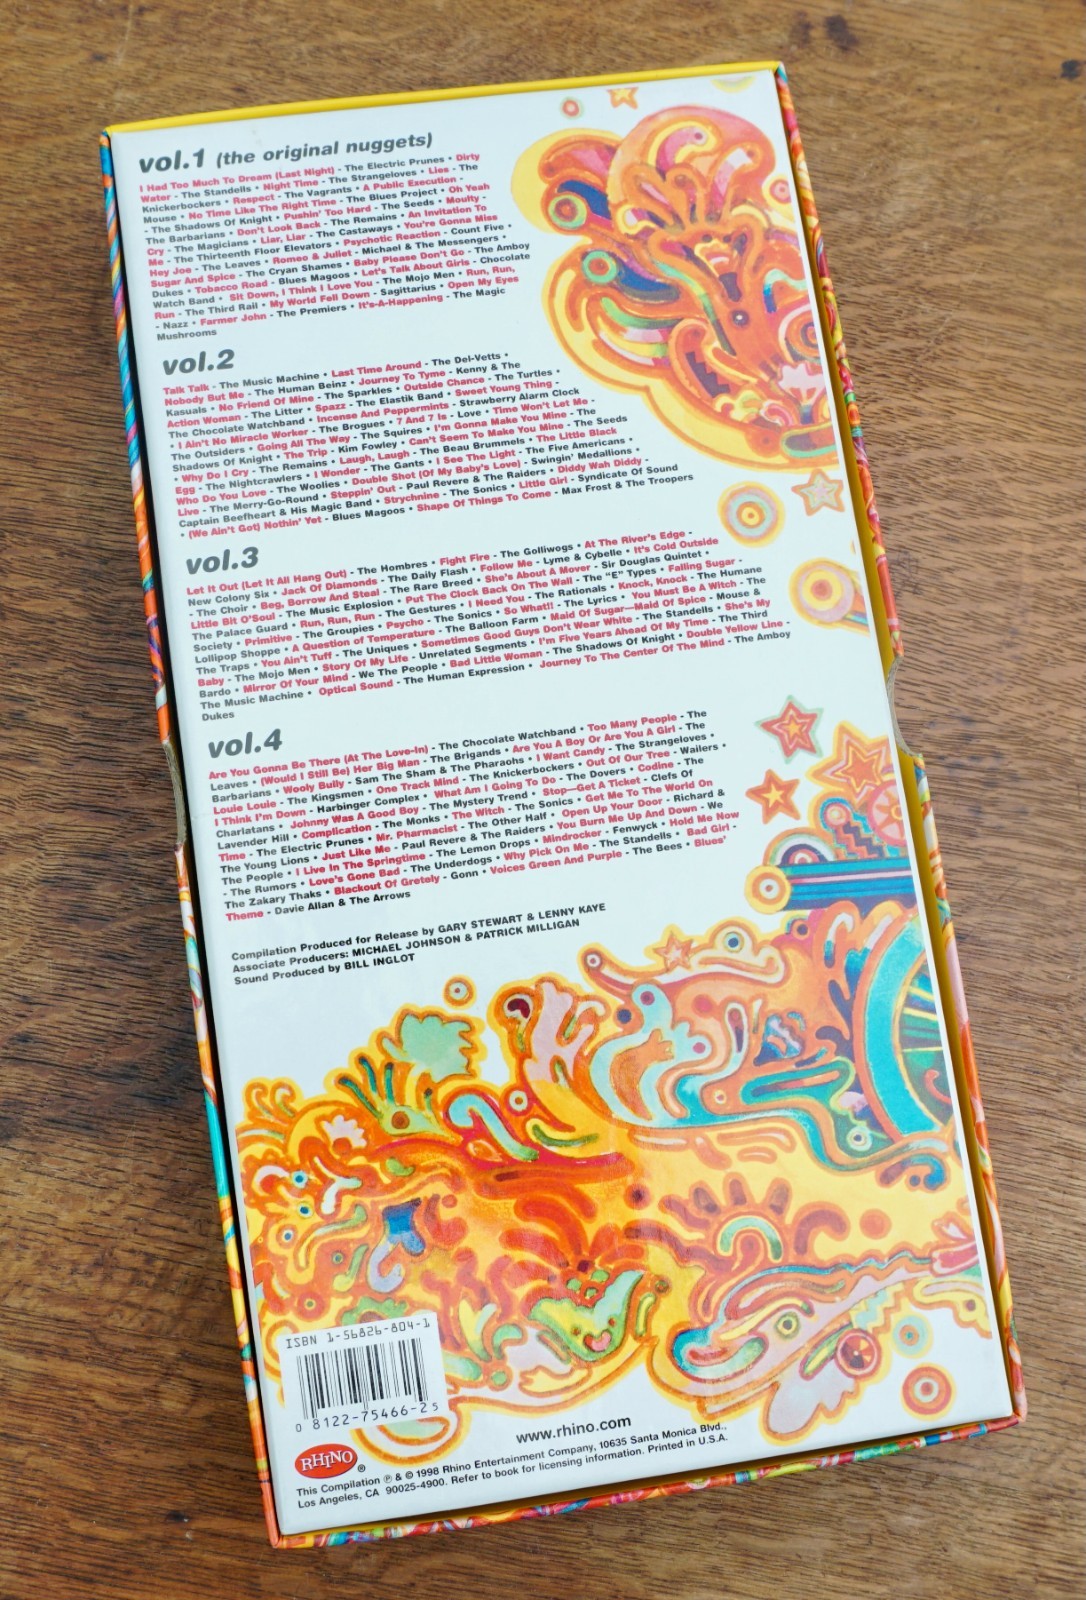 vol.1 (the original nuggets)
I Had Too Much To Dream (Last Night) - The Electric Prunes • Dirty
Water - The Standells • Night Time - The Strangeloves • Lies - The
Knickerbockers • Respect - The Vagrants • A Public Execution -
Mouse • No Time Like The Right Time - The Blues Project • Oh Yeah
- The Shadows Of Knight • Pushin' Too Hard - The Seeds • Moulty -
The Barbarians • Don't Look Back - The Remains • An Invitation To
Cry - The Magicians • Liar, Liar - The Castaways • You're Gonna Miss
Me - The Thirteenth Floor Elevators • Psychotic Reaction - Count Five •
Hey Joe - The Leaves • Romeo & Juliet - Michael & The Messengers •
Sugar And Spice - The Cryan Shames • Baby Please Don't Go - The Amboy
Dukes • Tobacco Road - Blues Magoos • Let's Talk About Girls - Chocolate
Watch Band • Sit Down, I Think I Love You - The Mojo Men • Run, Run,
Run - The Third Rail • My World Fell Down - Sagittarius • Open My Eyes
- Nazz • Farmer John - The Premiers • It's-A-Happening - The Magic
Mushrooms
vol.2
Talk Talk - The Music Machine • Last Time Around - The Del-Vetts •
Nobody But Me - The Human Beinz • Journey To Tyme - Kenny & The
Kasuals • No Friend Of Mine - The Sparkles • Outside Chance - The Turtles •
Action Woman - The Litter • Spazz - The Elastik Band • Sweet Young Thing -
The Chocolate Watchband • Incense And Peppermints - Strawberry Alarm Clock
• I Ain't No Miracle Worker - The Brogues • 7 And 7 Is - Love • Time Won't Let Me -
The Outsiders • Going All The Way - The Squires • I'm Gonna Make You Mine - The
Shadows Of Knight • The Trip - Kim Fowley • Can't Seem To Make You Mine - The Seeds
• Why Do I Cry - The Remains • Laugh, Laugh - The Beau Brummels • The Little Black
Egg - The Nightcrawlers • I Wonder - The Gants • I See The Light - The Five Americans •
Who Do You Love - The Woolies • Double Shot (Of My Baby's Love) - Swingin' Medallions •
Live - The Merry-Go-Round • Steppin' Out - Paul Revere & The Raiders • Diddy Wah Diddy -
Captain Beefheart & His Magic Band • Strychnine - The Sonics • Little Girl - Syndicate Of Sound
• (We Ain't Got) Nothin' Yet - Blues Magoos • Shape Of Things To Come - Max Frost & The Troopers
vol.3
Let It Out (Let It All Hang Out) - The Hombres • Fight Fire - The Golliwogs • At The River's Edge -
New Colony Six • Jack Of Diamonds - The Daily Flash • Follow Me - Lyme & Cybelle • It's Cold Outside
- The Choir • Beg, Borrow And Steal - The Rare Breed • She's About A Mover - Sir Douglas Quintet •
Little Bit O'Soul - The Music Explosion • Put The Clock Back On The Wall - The "E" Types • Falling Sugar -
The Palace Guard • Run, Run, Run - The Gestures • I Need You - The Rationals • Knock, Knock - The Humane
Society • Primitive - The Groupies • Psycho - The Sonics • So What!! - The Lyrics • You Must Be A Witch - The
Lollipop Shoppe • A Question of Temperature - The Balloon Farm • Maid Of Sugar—Maid Of Spice - Mouse &
The Traps • You Ain't Tuff - The Uniques • Sometimes Good Guys Don't Wear White - The Standells • She's My
Baby - The Mojo Men • Story Of My Life - Unrelated Segments • I'm Five Years Ahead Of My Time - The Third
Bardo • Mirror Of Your Mind - We The People • Bad Little Woman - The Shadows Of Knight • Double Yellow Line -
The Music Machine • Optical Sound - The Human Expression • Journey To The Center Of The Mind - The Amboy
Dukes
vol.4
Are You Gonna Be There (At The Love-In) - The Chocolate Watchband • Too Many People - The
Leaves • (Would I Still Be) Her Big Man - The Brigands • Are You A Boy Or Are You A Girl - The
Barbarians • Wooly Bully - Sam The Sham & The Pharaohs • I Want Candy - The Strangeloves •
Louie Louie - The Kingsmen • One Track Mind - The Knickerbockers • Out Of Our Tree - Wailers •
I Think I'm Down - Harbinger Complex • What Am I Going To Do - The Dovers • Codine - The
Charlatans • Johnny Was A Good Boy - The Mystery Trend • Stop—Get A Ticket - Clefs Of
Lavender Hill • Complication - The Monks • The Witch - The Sonics • Get Me To The World On
Time - The Electric Prunes • Mr. Pharmacist - The Other Half • Open Up Your Door - Richard &
The Young Lions • Just Like Me - Paul Revere & The Raiders • You Burn Me Up And Down - We
The People • I Live In The Springtime - The Lemon Drops • Mindrocker - Fenwyck • Hold Me Now
- The Rumors • Love's Gone Bad - The Underdogs • Why Pick On Me - The Standells • Bad Girl -
The Zakary Thaks • Blackout Of Gretely - Gonn • Voices Green And Purple - The Bees • Blues'
Theme - Davie Allan & The Arrows
Compilation Produced for Release by GARY STEWART & LENNY KAYE
Associate Producers: MICHAEL JOHNSON & PATRICK MILLIGAN
Sound Produced by BILL INGLOT
ISBN 1-56826-804-1
0 8122-75466-2 5
www.rhino.com
RHINO ®
This Compilation ℗ & © 1998 Rhino Entertainment Company, 10635 Santa Monica Blvd.,
Los Angeles, CA 90025-4900. Refer to book for licensing information. Printed in U.S.A.